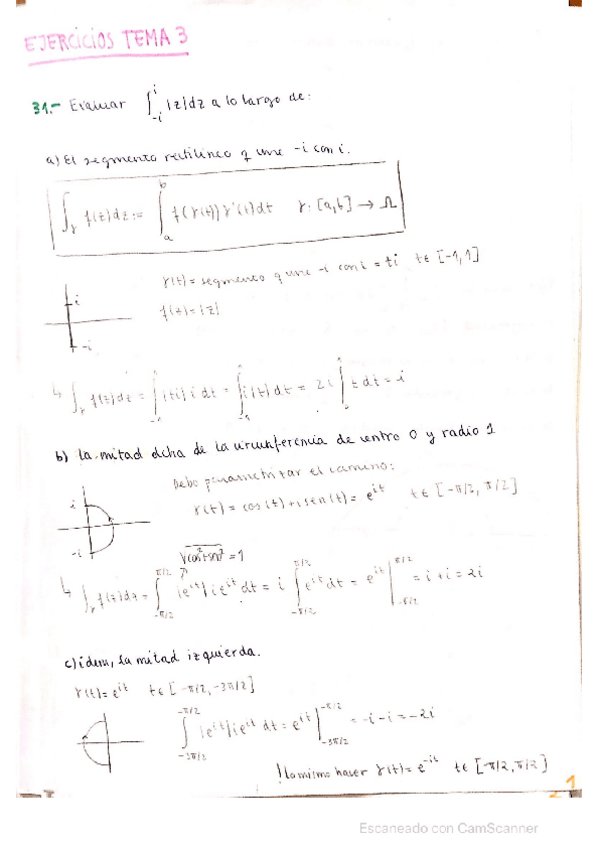 EJERCICIOS TEMA 3
31.- Evaluar ∫_{-i}^{i} |z|dz a lo largo de:
a) El segmento rectilíneo q une -i con i.
∫_γ f(z)dz := ∫_a^b f(γ(t)) γ'(t)dt γ: [a,b] → Ω
γ(t) = segmento q une -i con i = ti t∈ [-1,1]
i
f(z) = |z|
-i
↳ ∫_γ f(z)dz = ∫ |ti| i dt = ∫ i|t| dt = 2i ∫ t dt = i
b) La mitad dcha de la circunferencia de centro 0 y radio 1
Debo parametrizar el camino:
i
γ(t) = cos(t) + i sen(t) = e^{it} t∈ [-π/2, π/2]
-i
√(cos²+sen²) = 1
↳ ∫_γ f(z)dz = ∫_{-π/2}^{π/2} |e^{it}| i e^{it} dt = i ∫_{-π/2}^{π/2} e^{it} dt = e^{it} |_{-π/2}^{π/2} = i + i = 2i
c) idem, la mitad izquierda.
γ(t) = e^{it} t∈ [-π/2, -3π/2]
∫_{-3π/2}^{-π/2} |e^{it}| i e^{it} dt = e^{it} |_{-3π/2}^{-π/2} = -i - i = -2i
lo mismo hacer γ(t) = e^{-it} t∈ [-π/2, π/2]
1
Escaneado con CamScanner